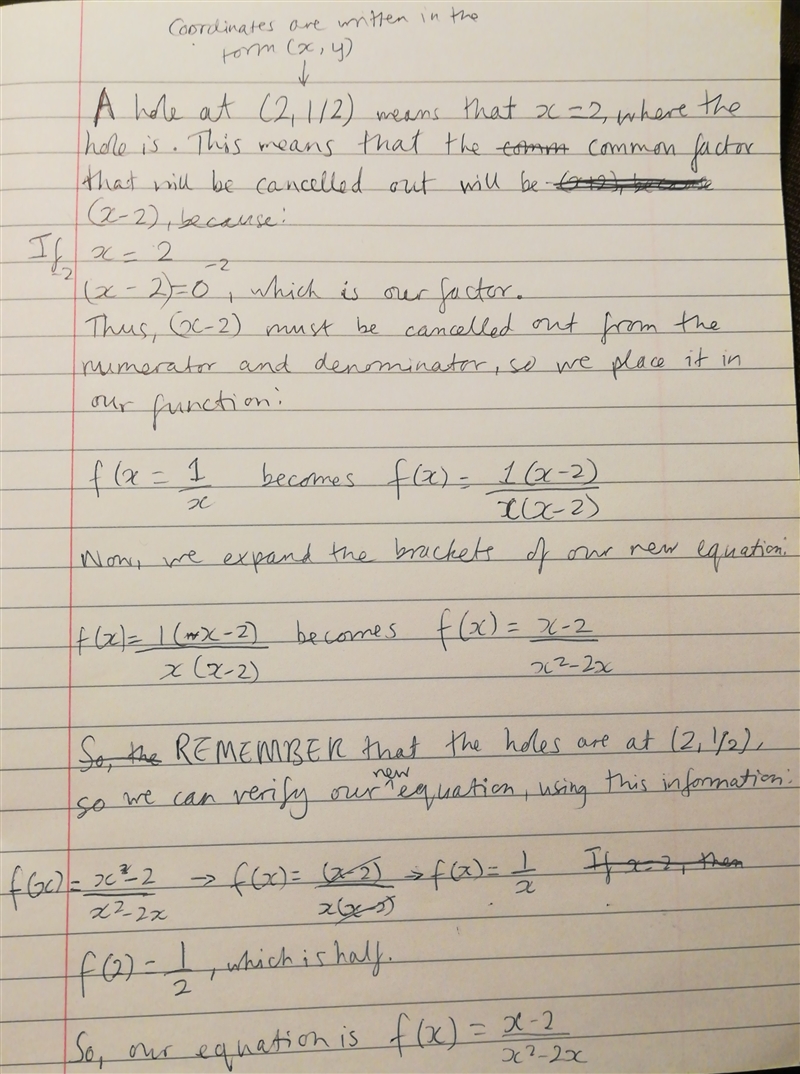 Coordinates are written in the
form (x, y)
↓
A hole at (2, 1/2) means that x = 2, where the
hole is. This means that the comm common factor
that will be cancelled out will be (x+2), because
(x-2), because:
If x = 2
-2 -2
(x - 2)=0, which is our factor.
Thus, (x-2) must be cancelled out from the
numerator and denominator, so we place it in
our function:
f(x = 1/x becomes f(x) = 1(x-2)/x(x-2)
Now, we expand the brackets of our new equation:
f(x) = 1(x-2)/x(x-2) becomes f(x) = x-2/x²-2x
So, the REMEMBER that the holes are at (2, 1/2),
so we can verify our new equation, using this information:
f(x) = x-2/x²-2x → f(x) = (x-2)/x(x-2) → f(x) = 1/x If x=2, then
f(2) = 1/2, which is half.
So, our equation is f(x) = x-2/x²-2x